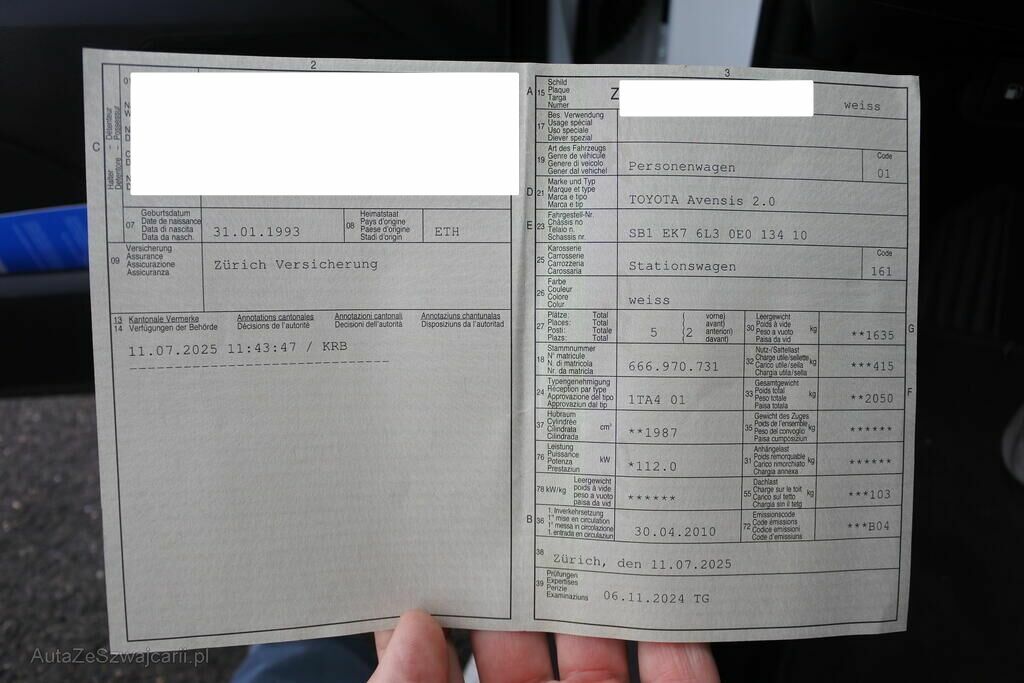 2
C
Halter - Détenteur
Detentore - Possessur
07
Geburtsdatum
Date de naissance
Data di nascita
Data da nasch.
31.01.1993
08
Heimatstaat
Pays d'origine
Paese d'origine
Stadi d'origin
ETH
09
Versicherung
Assurance
Assicurazione
Assicuranza
Zürich Versicherung
13 Kantonale Vermerke Annotations cantonales Annotazioni cantonali Annotaziuns chantunalas
14 Verfügungen der Behörde Décisions de l'autorité Decisioni dell'autorità Disposiziuns da l'autoritad
11.07.2025 11:43:47 / KRB
3
A 15
Schild
Plaque
Targa
Numer
Z
weiss
17
Bes. Verwendung
Usage spécial
Uso speciale
Diever spezial
19
Art des Fahrzeugs
Genre de véhicule
Genere di veicolo
Gener dal vehichel
Personenwagen
Code
01
D 21
Marke und Typ
Marque et type
Marca e tipo
Marca e tip
TOYOTA Avensis 2.0
E 23
Fahrgestell-Nr.
Châssis no
Telaio n.
Schassis nr.
SB1 EK7 6L3 0E0 134 10
25
Karosserie
Carrosserie
Carrozzeria
Carossaria
Stationswagen
Code
161
26
Farbe
Couleur
Colore
Colur
weiss
27
Plätze: Total
Places: Total
Posti: Totale
Plazs: Total
5
(2
vorne)
avant)
anteriori)
davant)
G
30
Leergewicht
Poids à vide
Peso a vuoto
Paisa da vid
kg
**1635
18
Stammnummer
N° matricule
N. di matricola
Nr. da matricla
666.970.731
32
Nutz-/Sattellast
Charge utile/sellette
Carico utile/sella
Chargia utila/sella
kg
***415
24
Typengenehmigung
Réception par type
Approvazione del tipo
Approvaziun dal tip
1TA4 01
F
33
Gesamtgewicht
Poids total
Peso totale
Paisa totala
kg
**2050
37
Hubraum
Cylindrée
Cilindrata
Cilindrada
cm³
**1987
35
Gewicht des Zuges
Poids de l'ensemble
Peso del convoglio
Paisa cumposiziun
kg
******
76
Leistung
Puissance
Potenza
Prestaziun
kW
*112.0
31
Anhängelast
Poids remorquable
Carico rimorchiato
Chargia annexa
kg
******
78 kW/kg
Leergewicht
poids à vide
peso a vuoto
paisa da vid
******
55
Dachlast
Charge sur le toit
Carico sul tetto
Chargia sin il tetg
kg
***103
B 36
1. Inverkehrsetzung
1re mise en circulation
1a messa in circolazione
1. entrada en circulaziun
30.04.2010
72
Emissionscode
Code émissions
Codice emissioni
Code d'emissiuns
***B04
38
Zürich, den 11.07.2025
39
Prüfungen
Expertises
Perizie
Examinaziuns
06.11.2024 TG
AutaZeSzwajcarii.pl